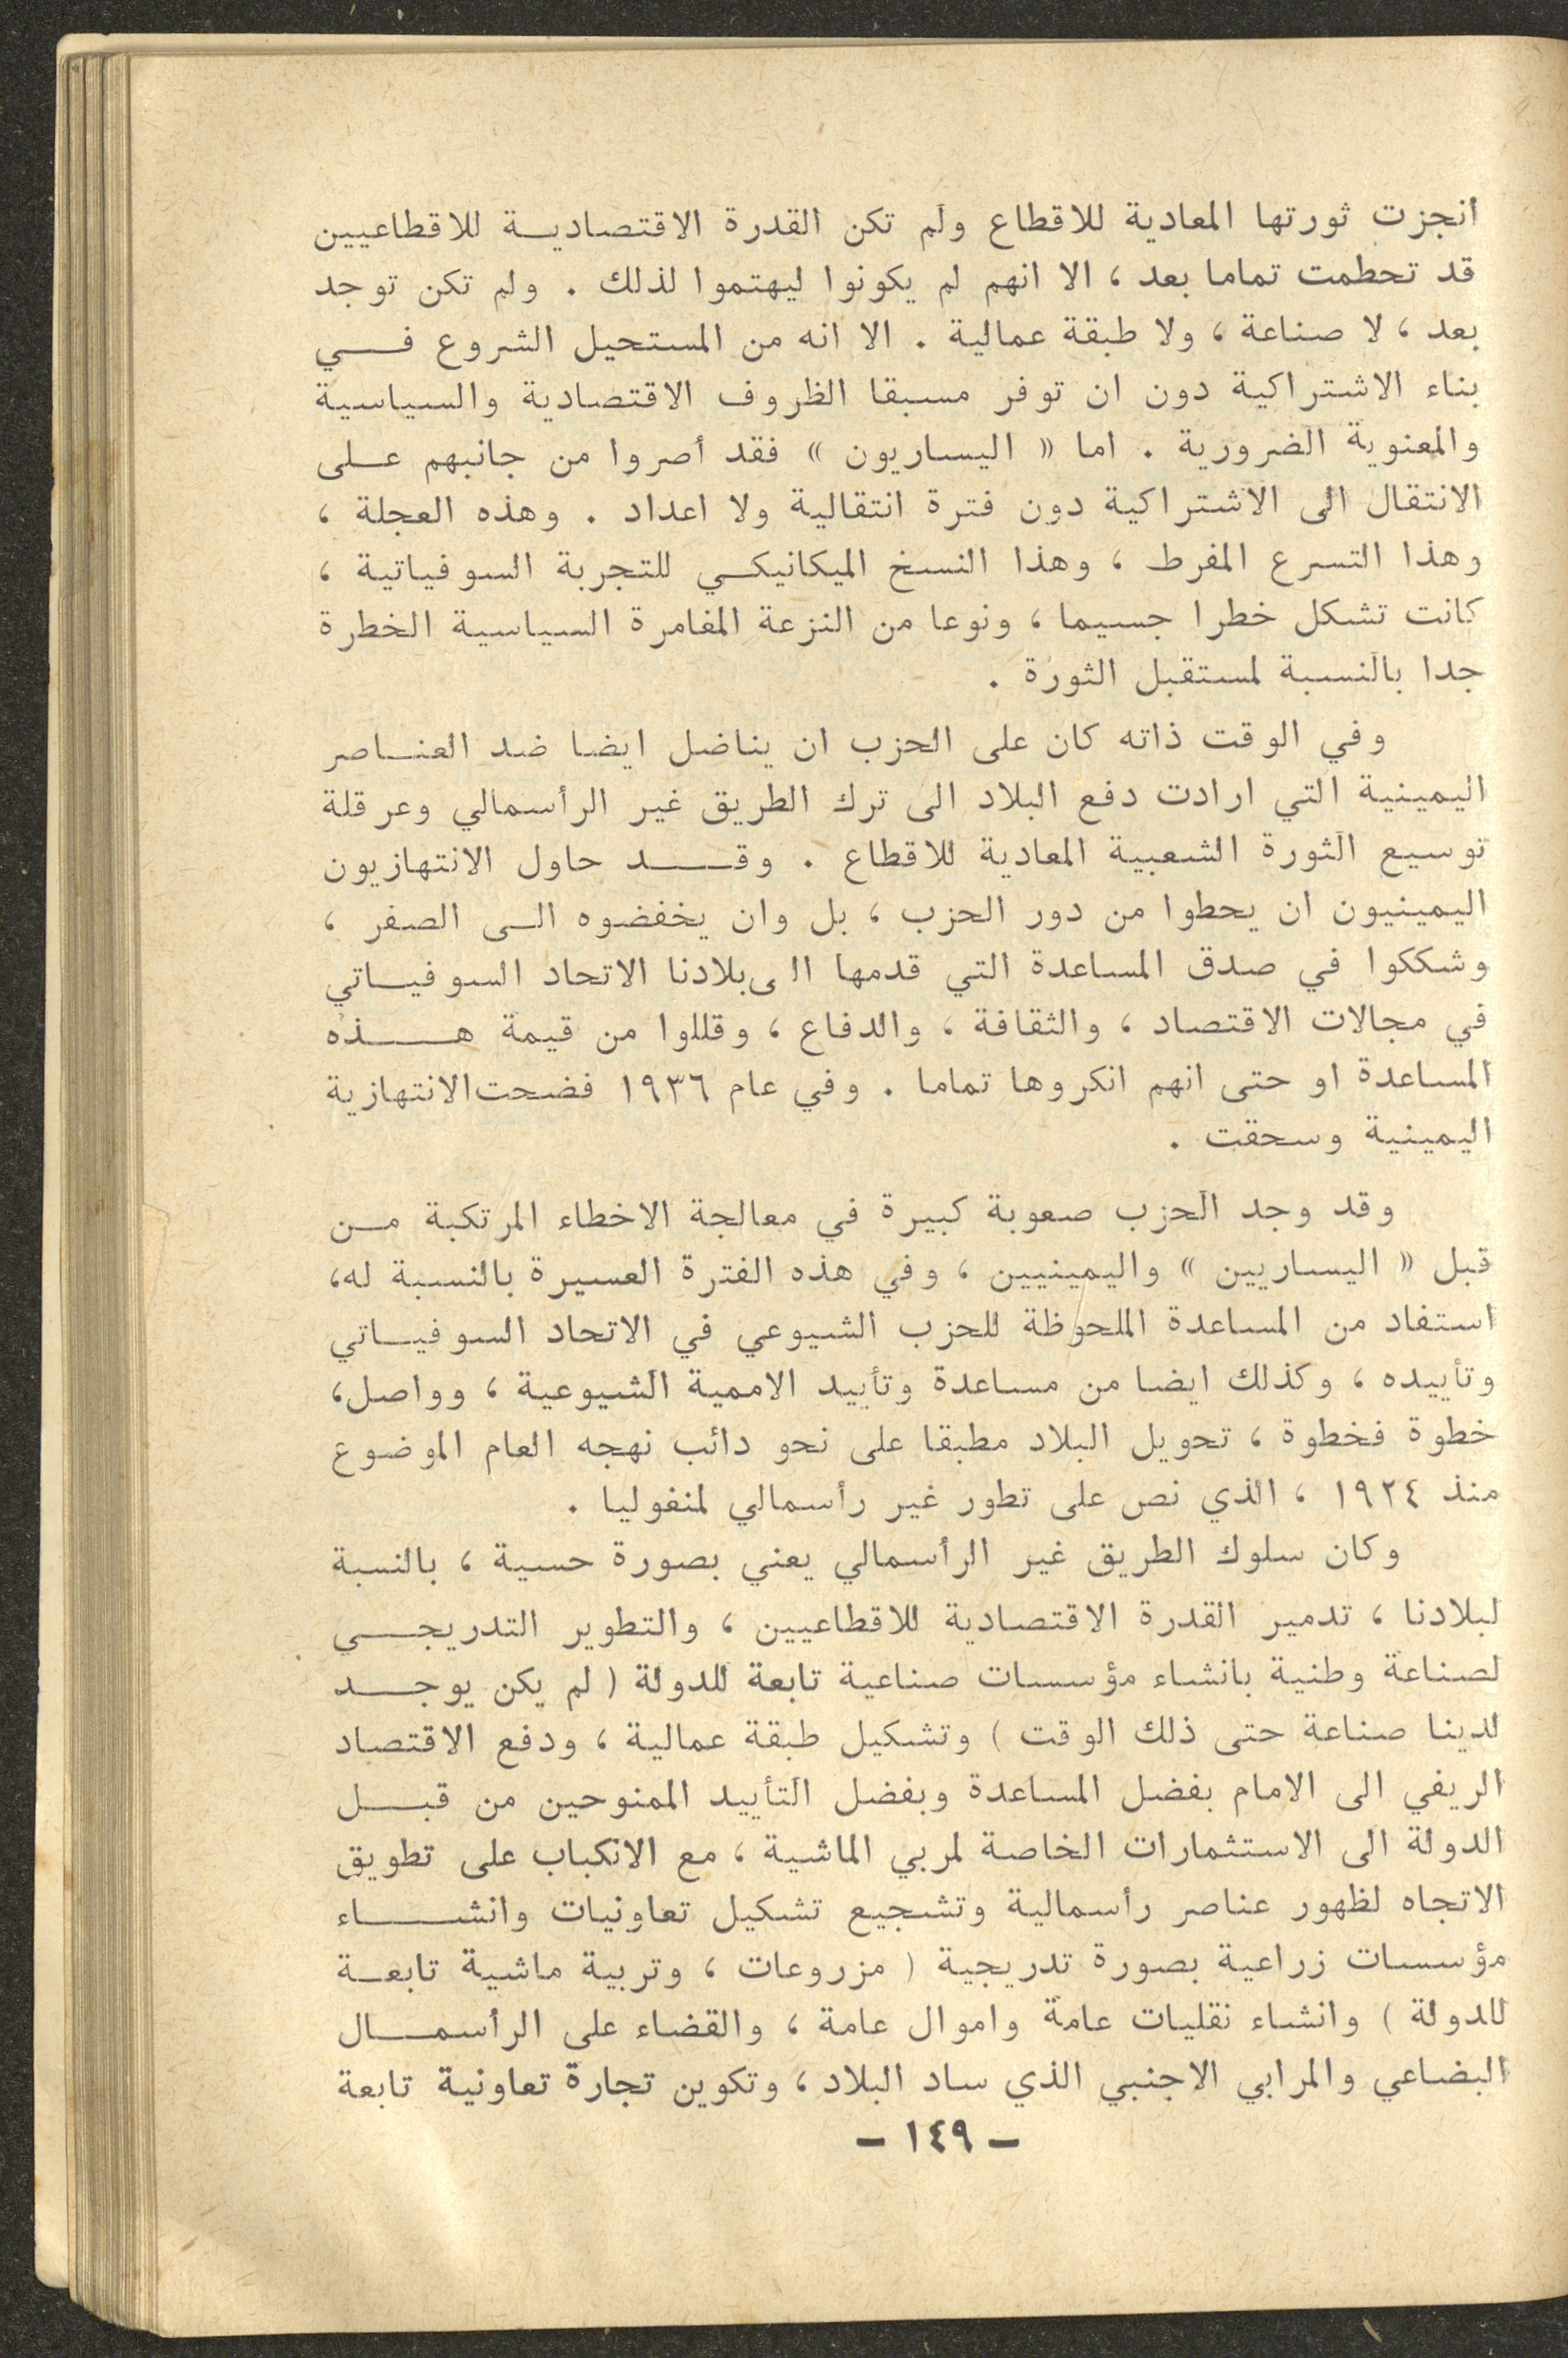 انجزت ثورتها المعادية للاقطاع ولم تكن القدرة الاقتصادية للاقطاعيين
قد تحطمت تماما بعد ، الا انهم لم يكونوا ليهتموا لذلك . ولم تكن توجد
بعد ، لا صناعة ، ولا طبقة عمالية . الا انه من المستحيل الشروع في
بناء الاشتراكية دون ان توفر مسبقا الظروف الاقتصادية والسياسية
والمعنوية الضرورية . اما « اليساريون » فقد أصروا من جانبهم على
الانتقال الى الاشتراكية دون فترة انتقالية ولا اعداد . وهذه العجلة ،
وهذا التسرع المفرط ، وهذا النسخ الميكانيكي للتجربة السوفياتية ،
كانت تشكل خطرا جسيما ، ونوعا من النزعة المغامرة السياسية الخطرة
جدا بالنسبة لمستقبل الثورة .
وفي الوقت ذاته كان على الحزب ان يناضل ايضا ضد العناصر
اليمينية التي ارادت دفع البلاد الى ترك الطريق غير الرأسمالي وعرقلة
توسيع الثورة الشعبية المعادية للاقطاع . وقد حاول الانتهازيون
اليمينيون ان يحطوا من دور الحزب ، بل وان يخفضوه الى الصفر ،
وشككوا في صدق المساعدة التي قدمها الى بلادنا الاتحاد السوفياتي
في مجالات الاقتصاد ، والثقافة ، والدفاع ، وقللوا من قيمة هذه
المساعدة او حتى انهم انكروها تماما . وفي عام ١٩٣٦ فضحت الانتهازية
اليمينية وسحقت .
وقد وجد الحزب صعوبة كبيرة في معالجة الاخطاء المرتكبة من
قبل « اليساريين » واليمينيين ، وفي هذه الفترة العسيرة بالنسبة له،
استفاد من المساعدة الملحوظة للحزب الشيوعي في الاتحاد السوفياتي
وتأييده ، وكذلك ايضا من مساعدة وتأييد الاممية الشيوعية ، وواصل،
خطوة فخطوة ، تحويل البلاد مطبقا على نحو دائب نهجه العام الموضوع
منذ ١٩٢٤ ، الذي نص على تطور غير رأسمالي لمنغوليا .
وكان سلوك الطريق غير الرأسمالي يعني بصورة حسية ، بالنسبة
لبلادنا ، تدمير القدرة الاقتصادية للاقطاعيين ، والتطوير التدريجي
لصناعة وطنية بانشاء مؤسسات صناعية تابعة للدولة ( لم يكن يوجد
لدينا صناعة حتى ذلك الوقت ) وتشكيل طبقة عمالية ، ودفع الاقتصاد
الريفي الى الامام بفضل المساعدة وبفضل التأييد الممنوحين من قبل
الدولة الى الاستثمارات الخاصة لمربي الماشية ، مع الانكباب على تطويق
الاتجاه لظهور عناصر رأسمالية وتشجيع تشكيل تعاونيات وانشاء
مؤسسات زراعية بصورة تدريجية ( مزروعات ، وتربية ماشية تابعة
للدولة ) وانشاء نقليات عامة واموال عامة ، والقضاء على الرأسمال
البضاعي والمرابي الاجنبي الذي ساد البلاد ، وتكوين تجارة تعاونية تابعة
– ١٤٩ –